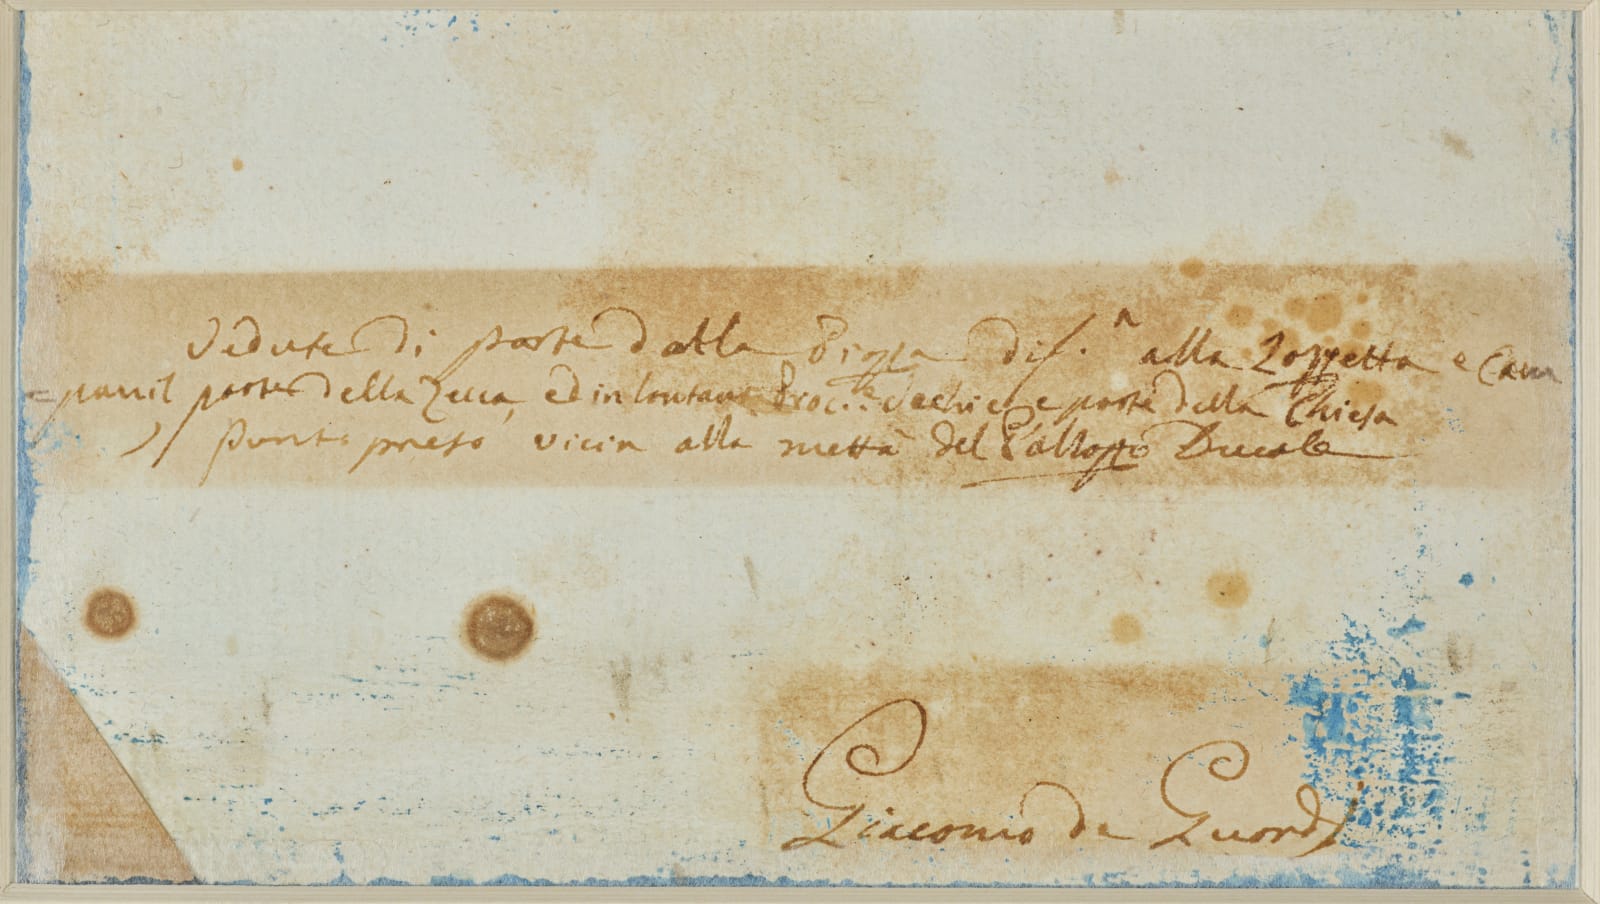 Vedute di parte dalla Piazza di S. alla Loggetta e Cam
=panil parte della Zecca, ed in lontano Proc.e Vechie e parte della Chiesa
Punto preso vicin alla mettà del Pallazzo Ducale
Giacomo de Guardi